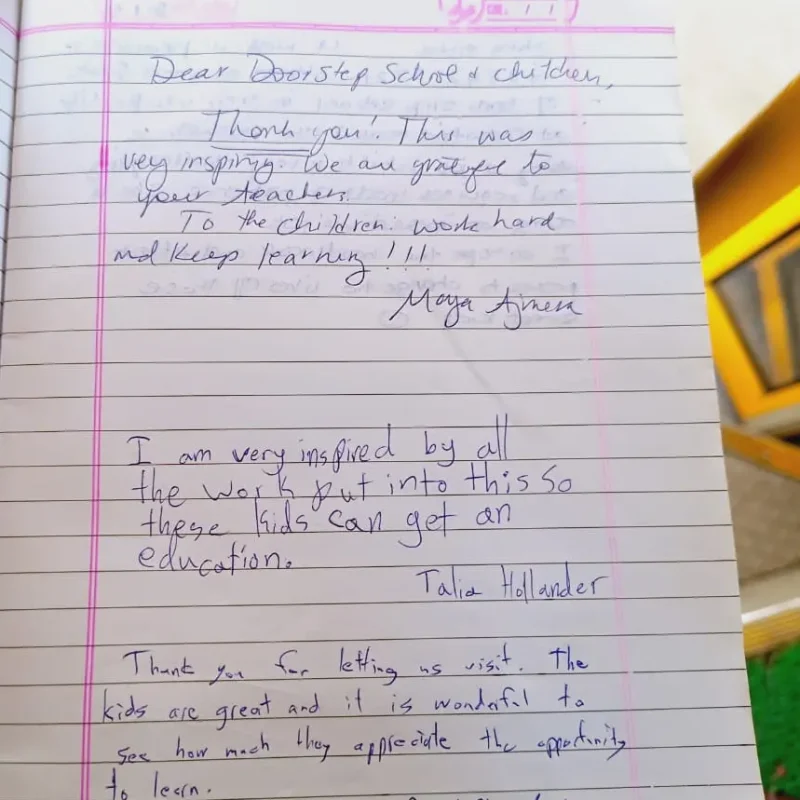 Dear Doorstep School & children,
Thank you! This was
very inspiring. We are grateful to
your teachers.
To the children: work hard
and keep learning!!!
Maya Ajmera
I am very inspired by all
the work put into this so
these kids can get an
education.
Talia Hollander
Thank you for letting us visit. The
kids are great and it is wonderful to
see how much they appreciate the opportunity
to learn.